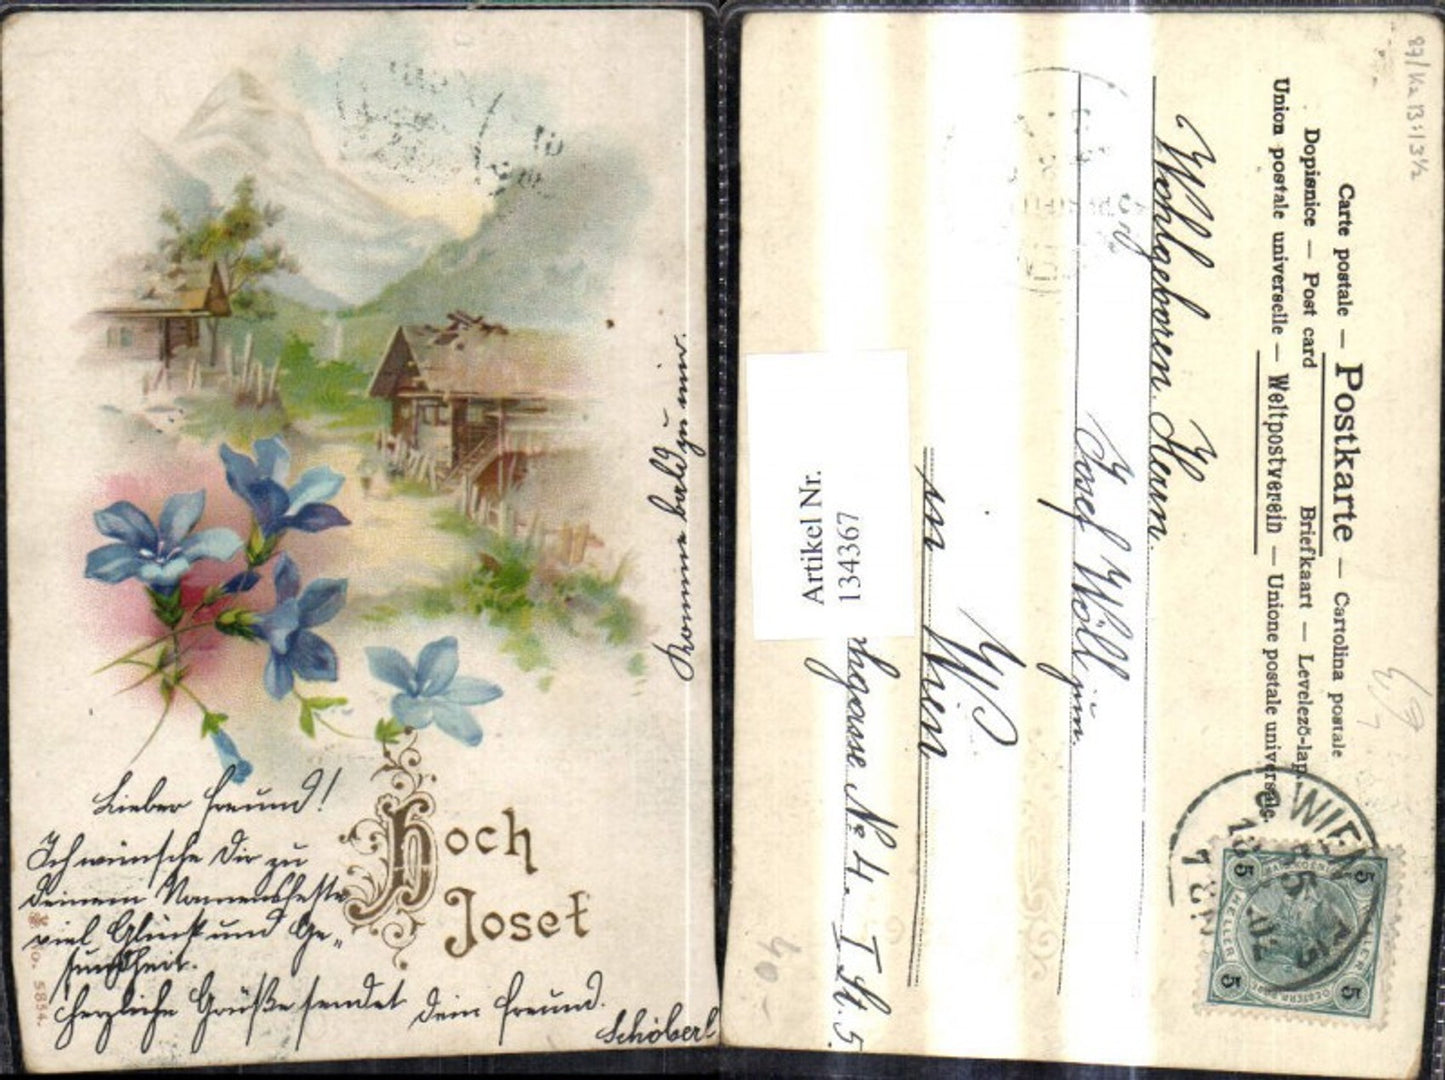 Hoch
Josef
Lieber Freund!
Ich wünsche Dir zu
deinem Namensfeste
viel Glück und Ge-
sundheit.
Herzliche Grüße sendet Dein Freund.
Schöberl
Komme bald zu mir.
No. 5854.
87/
Carte postale — Postkarte — Cartolina postale
Dopisnice — Post card Briefkaart — Levelező-lap.
Union postale universelle — Weltpostverein — Unione postale universale.
Wohlgeboren Herrn
Josef Wöll jun.
in Wien
gasse № 4. I St. 5.
Artikel Nr.
134367
WIEN
5 5
HELLER HELLER
5 5
40.-